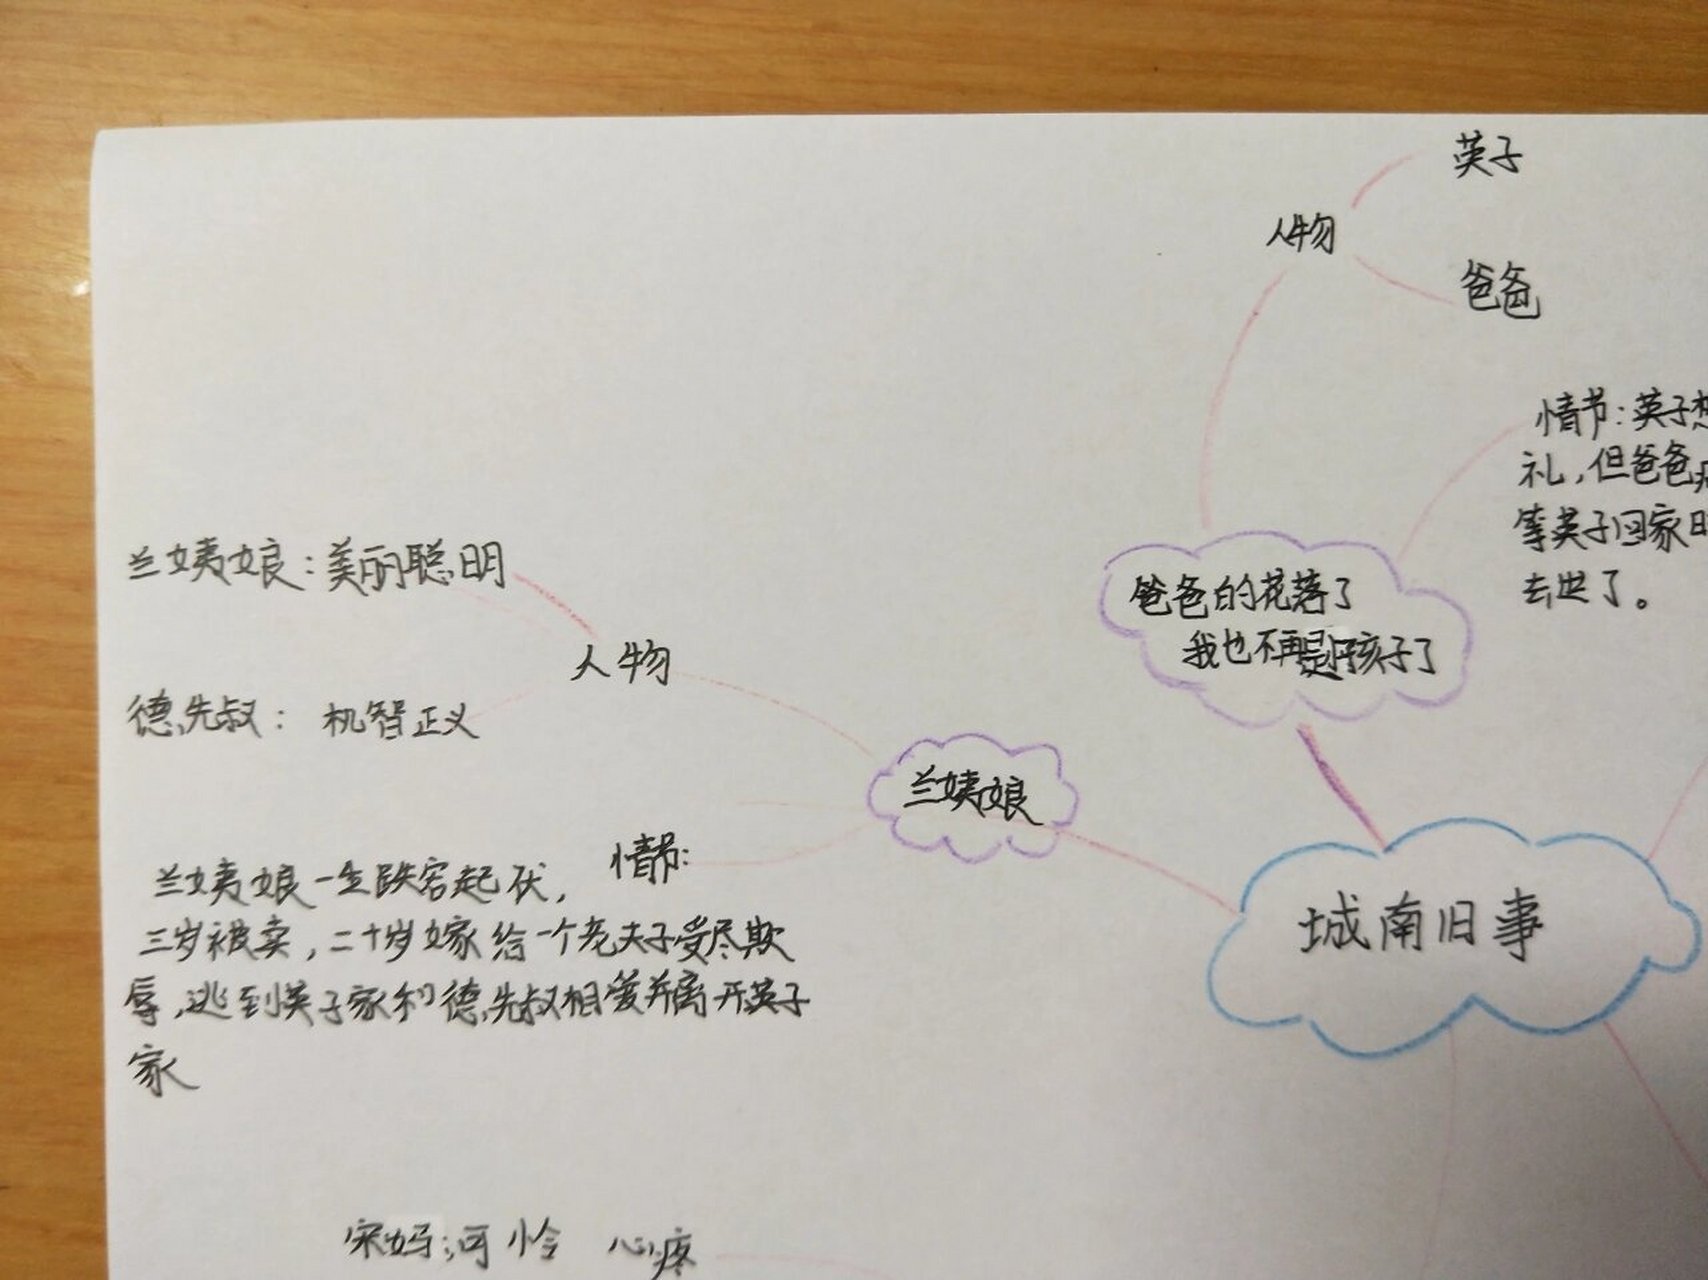 英子
人物
爸爸
情节：英子
礼，但爸爸
等英子回家
去世了。
爸爸的花落了
我也不再是小孩子了
兰姨娘：美丽聪明
人物
德先叔：机智正义
兰姨娘
情节：
兰姨娘一生跌宕起伏，
三岁被卖，二十岁嫁给一个老夫子受尽欺
辱，逃到英子家和德先叔相爱并离开英子
家
城南旧事
宋妈：可怜 心疼